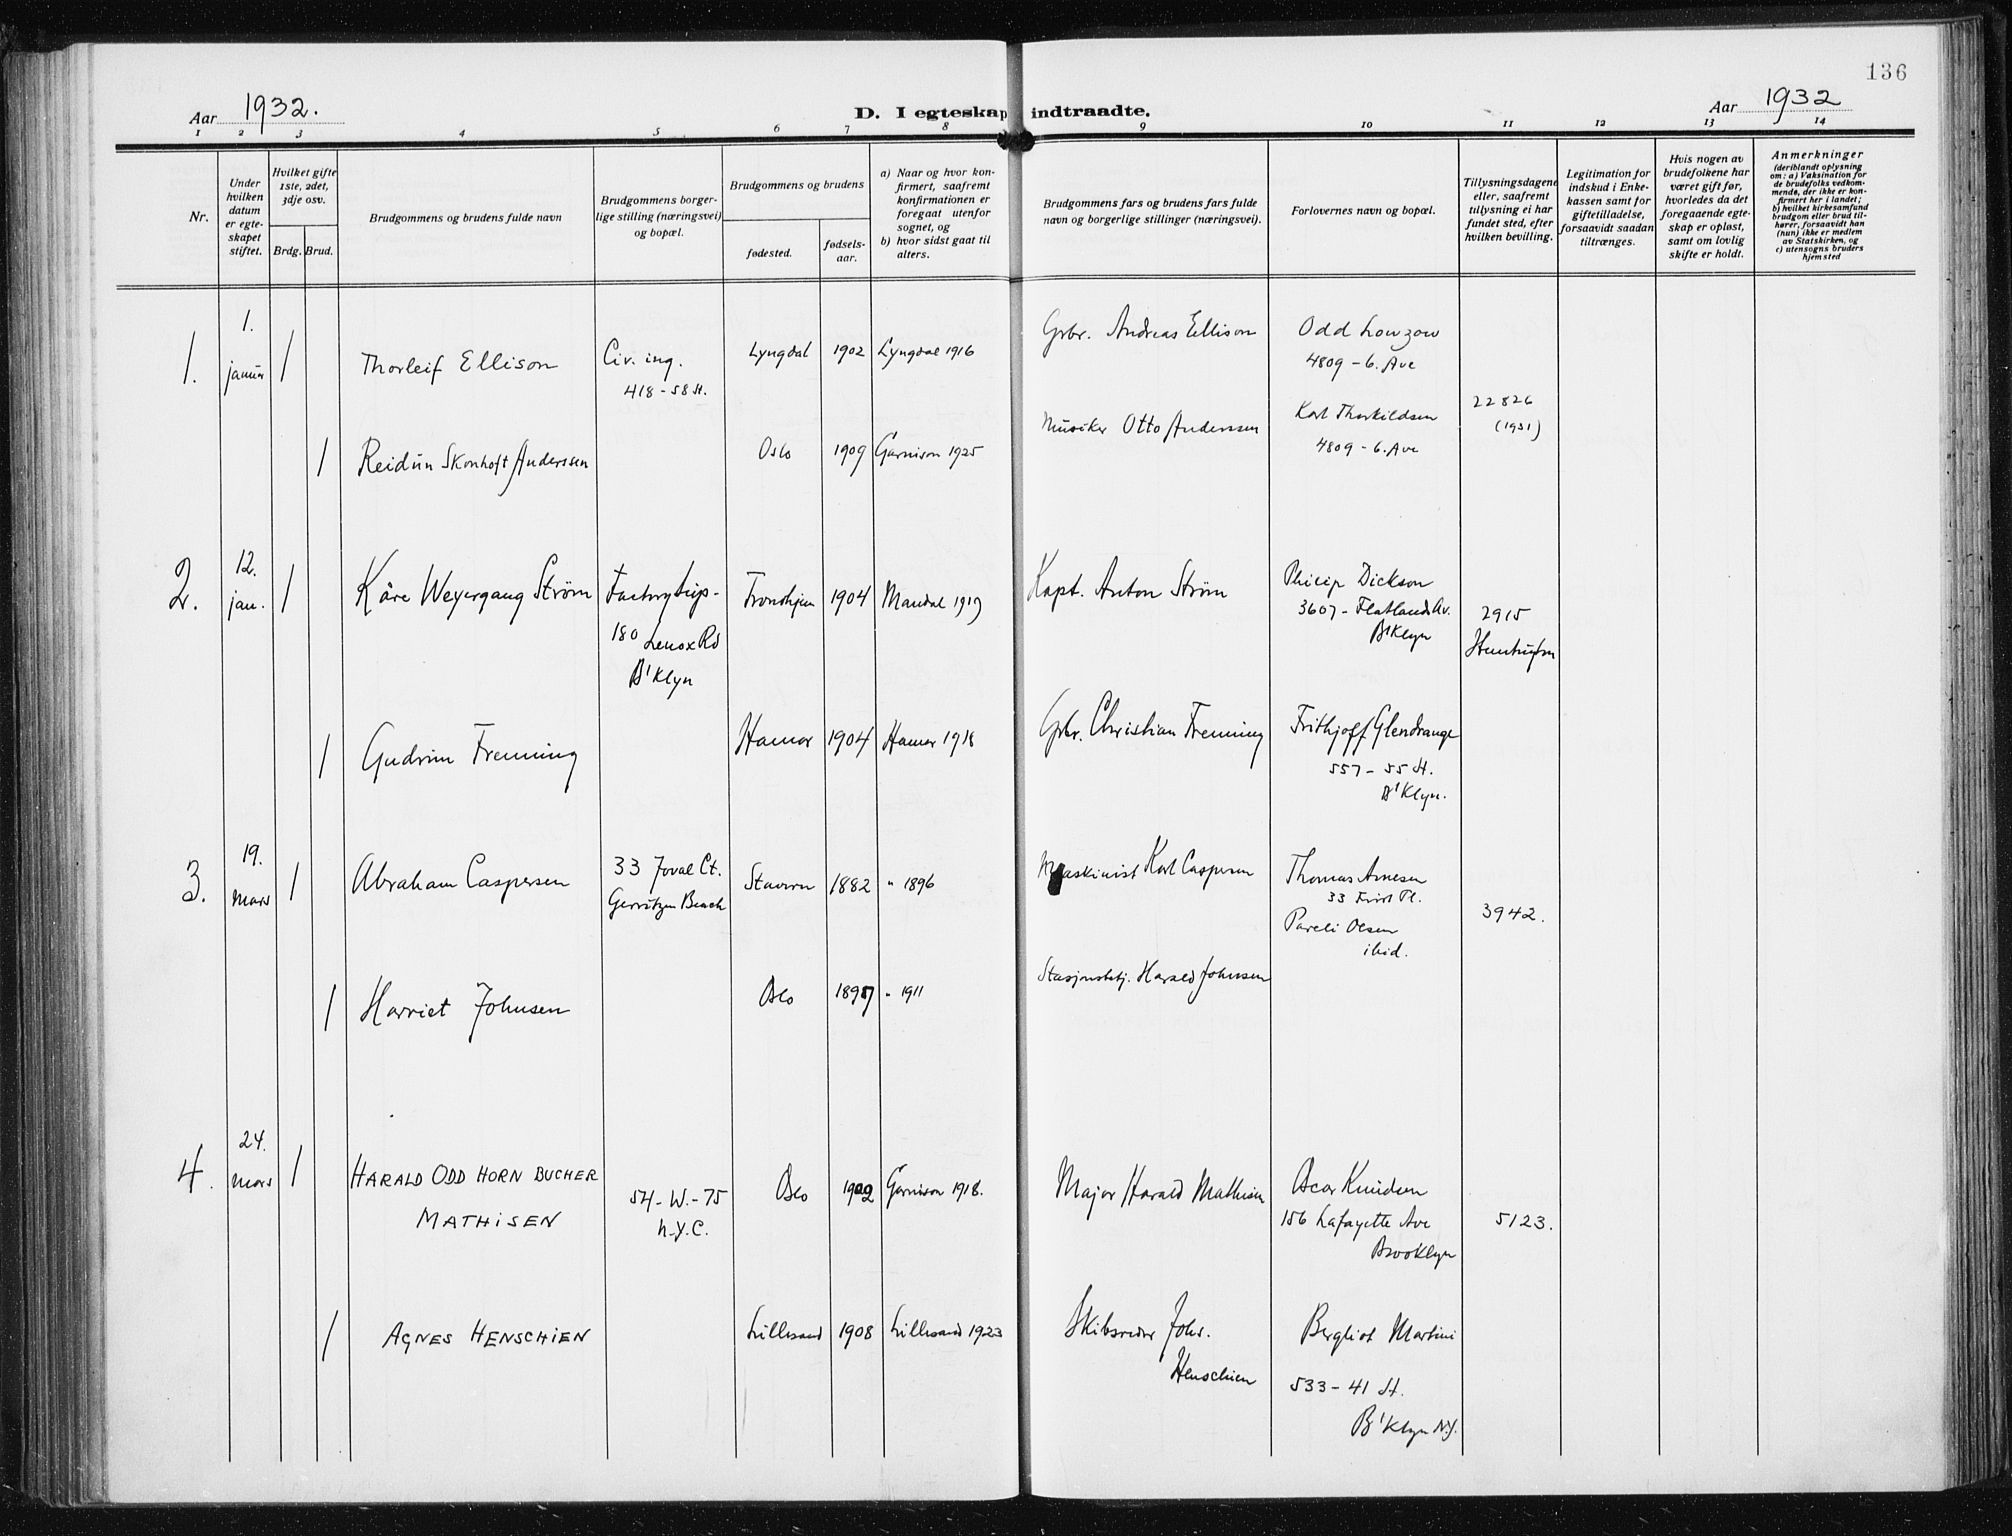 136
Aar 1932.
D. I egteskap indtraadte.
Aar 1932
1 2 3 4 5 6 7 8 9 10 11 12 13 14
Nr.
Under
hvilken
datum
er egte-
skapet
stiftet.
Hvilket gifte
1ste, 2det,
3dje osv.
Brdg. Brud.
Brudgommens og brudens fulde navn
Brudgommens borger-
lige stilling (næringsvei)
og bopæl.
Brudgommens og brudens
fødested.
fødsels-
aar.
a) Naar og hvor kon-
firmert, saafremt
konfirmationen er
foregaat utenfor
sognet, og
b) hvor sidst gaat til
alters.
Brudgommens fars og brudens fars fulde
navn og borgerlige stillinger (næringsvei).
Forlovernes navn og bopæl.
Tillysningsdagene
eller, saafremt
tillysning ei har
fundet sted, efter
hvilken bevilling.
Legitimation for
indskud i Enke-
kassen samt for
giftetilladelse,
forsaavidt saadan
tiltrænges.
Hvis nogen av
brudefolkene har
været gift før,
hvorledes da det
foregaaende egte-
skap er opløst,
samt om lovlig
skifte er holdt.
Anmerkninger
(deriblandt oplysning
om: a) Vaksination for
de brudefolks vedkom-
mende, der ikke er kon-
firmert her i landet;
b) hvilket kirkesamfund
brudgom eller brud til-
hører, forsaavidt han
(hun) ikke er medlem
av Statskirken, og
c) utensogns bruders
hjemsted
1.
1.
januar
1
Thorleif Ellison
Civ. ing.
418 - 58 St.
Lyngdal
1902
Lyngdal 1916
Grbr. Andreas Ellison
Odd Lowzow
4809 - 6. Ave
22826
(1931)
1
Reidun Skonhoft Anderssen
Oslo
1909
Garnison 1925
Musiker Otto Anderssen
Karl Thorkildsen
4809 - 6. Ave
2.
12.
jan.
1
Kåre Weyergang Strøm
Factory
180 Lenox Rd
B'klyn
Trondhjem
1904
Mandal 1919
Kapt. Anton Strøm
Philip Dickson
3607 - Flatlands Av.
B'klyn
2915
1
Gudrun Frenning
Hamar
1904
Hamar 1918
Grbr. Christian Frenning
Frithjoff Glendrange
557 - 55 St.
B'klyn.
3.
19.
Mars
1
Abraham Caspersen
33 Joval Ct.
Gerritzen Beach
Stavern
1882
" 1896
Maskinist Karl Caspersen
Thomas Arnesen
33 First Pl.
Pareli Olsen
ibid.
3942.
1
Harriet Johnsen
Oslo
1897
" 1911
Stasjonsbetj. Harald Johnsen
4.
24.
Mars
1
HARALD ODD HORN BUCHER
MATHISEN
54 - W. - 75
N.Y.C.
Oslo
1902
Garnison 1918.
Major Harald Mathisen
Oscar Knudsen
156 Lafayette Ave
Brooklyn
5123.
1
AGNES HENSCHIEN
Lillesand
1908
Lillesand 1923
Skibsreder Johs.
Henschien
Bergliot Martini
533 - 41 St.
B'klyn N.Y.